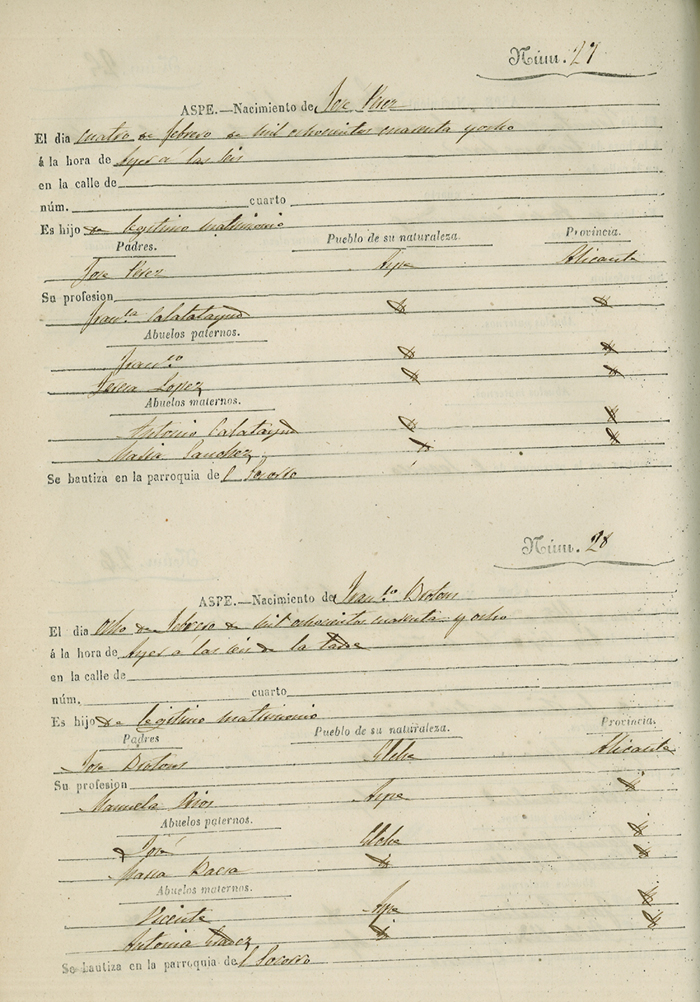 Núm. 27
ASPE.—Nacimiento de José Pérez
El dia cuatro de febrero de mil ochocientos cuarenta y ocho
á la hora de Ayer a las seis
en la calle de
núm. cuarto
Es hijo de legitimo matrimonio
Padres. Pueblo de su naturaleza. Provincia.
Jose Pérez Aspe Alicante
Su profesion
Fran.ca Calatayud
Abuelos paternos.
Fran.co
Teresa Lopez
Abuelos maternos.
Antonio Calatayud
Maria Sanchez
Se bautiza en la parroquia de l Socorro
Núm. 28
ASPE.—Nacimiento de Fran.co Brotons
El dia ocho de Febrero de mil ochocientos cuarenta y ocho
á la hora de Ayer a las seis de la tarde
en la calle de
núm. cuarto
Es hijo de legitimo matrimonio
Padres Pueblo de su naturaleza. Provincia.
Jose Brotons Elche Alicante
Su profesion
Manuela Rios Aspe
Abuelos paternos.
José Elche
Maria
Abuelos maternos.
Vicente Aspe
Antonia
Se bautiza en la parroquia de l Socorro